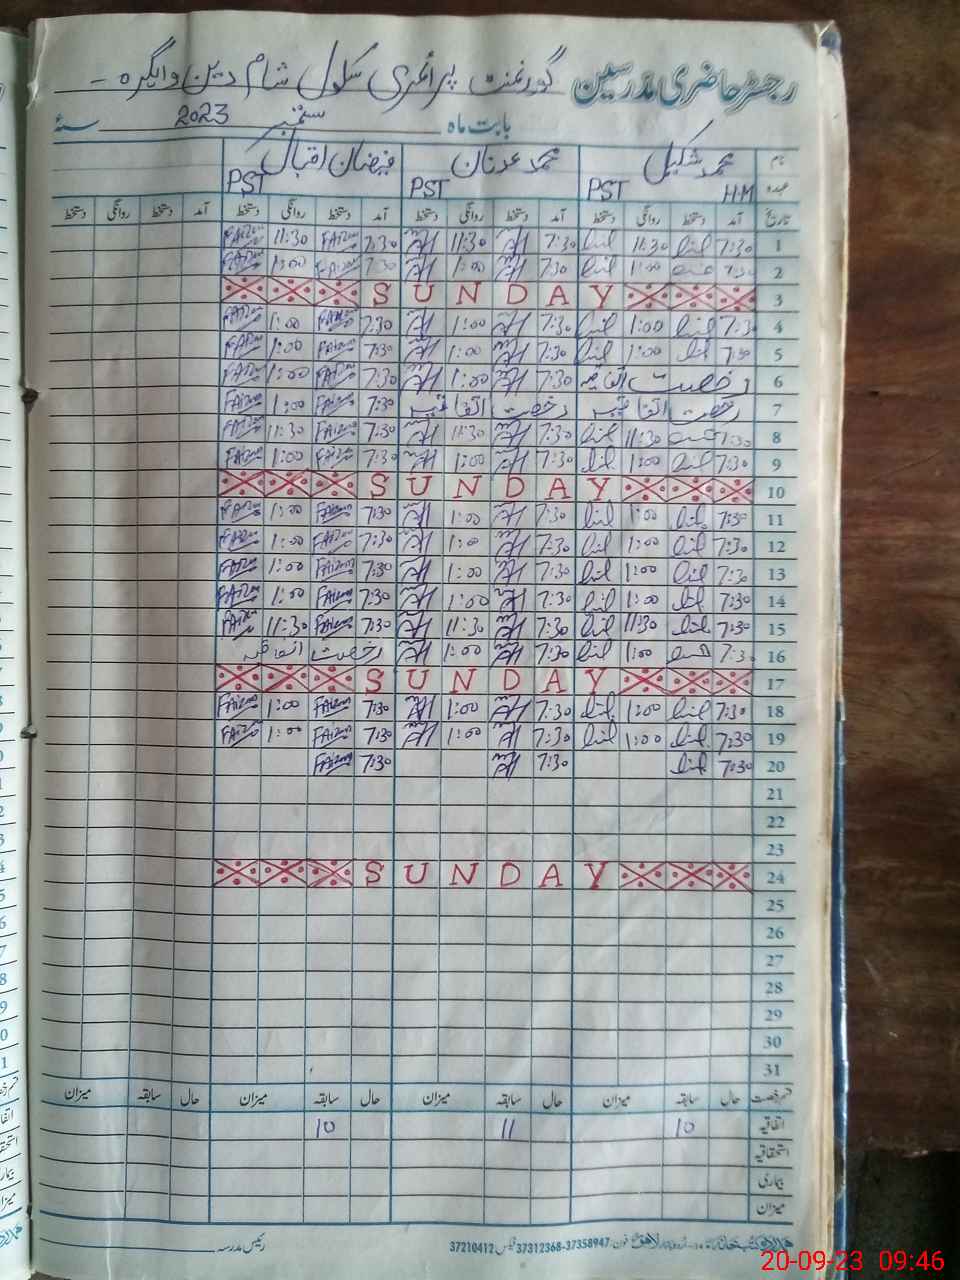 رجسٹر حاضری مدرسین گورنمنٹ پرائمری سکول شام دین وانگرہ
بابت ماہ ستمبر 2023 سنۂ
نام محمد شکیل محمد عدنان فیضان اقبال
عہدہ H.M PST PST PST
تاریخ آمد دستخط روانگی دستخط آمد دستخط روانگی دستخط آمد دستخط روانگی دستخط آمد دستخط روانگی دستخط
1 7:30 11:30 7:30 11:30 7:30 FAIZAN 11:30 FAIZAN
2 7:30 1:00 7:30 1:00 7:30 FAIZAN 1:00 FAIZAN
3 SUNDAY
4 7:30 1:00 7:30 1:00 7:30 FAIZAN 1:00 FAIZAN
5 7:30 1:00 7:30 1:00 7:30 FAIZAN 1:00 FAIZAN
6 رخصت اتفاقیہ 7:30 1:00 7:30 FAIZAN 1:00 FAIZAN
7 رخصت اتفاقیہ رخصت اتفاقیہ 7:30 FAIZAN 1:00 FAIZAN
8 7:30 11:30 7:30 11:30 7:30 FAIZAN 11:30 FAIZAN
9 7:30 1:00 7:30 1:00 7:30 FAIZAN 1:00 FAIZAN
10 SUNDAY
11 7:30 1:00 7:30 1:00 7:30 FAIZAN 1:00 FAIZAN
12 7:30 1:00 7:30 1:00 7:30 FAIZAN 1:00 FAIZAN
13 7:30 1:00 7:30 1:00 7:30 FAIZAN 1:00 FAIZAN
14 7:30 1:00 7:30 1:00 7:30 FAIZAN 1:00 FAIZAN
15 7:30 11:30 7:30 11:30 7:30 FAIZAN 11:30 FAIZAN
16 7:30 1:00 7:30 1:00 رخصت اتفاقیہ
17 SUNDAY
18 7:30 1:00 7:30 1:00 7:30 FAIZAN 1:00 FAIZAN
19 7:30 1:00 7:30 1:00 7:30 FAIZAN 1:00 FAIZAN
20 7:30 7:30 7:30 FAIZAN
21
22
23
24 SUNDAY
25
26
27
28
29
30
31
قسم رخصت حال سابقہ میزان حال سابقہ میزان حال سابقہ میزان حال سابقہ میزان
اتفاقیہ 10 11 10
استحقاقیہ
بیماری
میزان
لاہور فون: 37358947-37312368 فیکس 37210412 رئیس مدرسہ
20-09-23 09:46